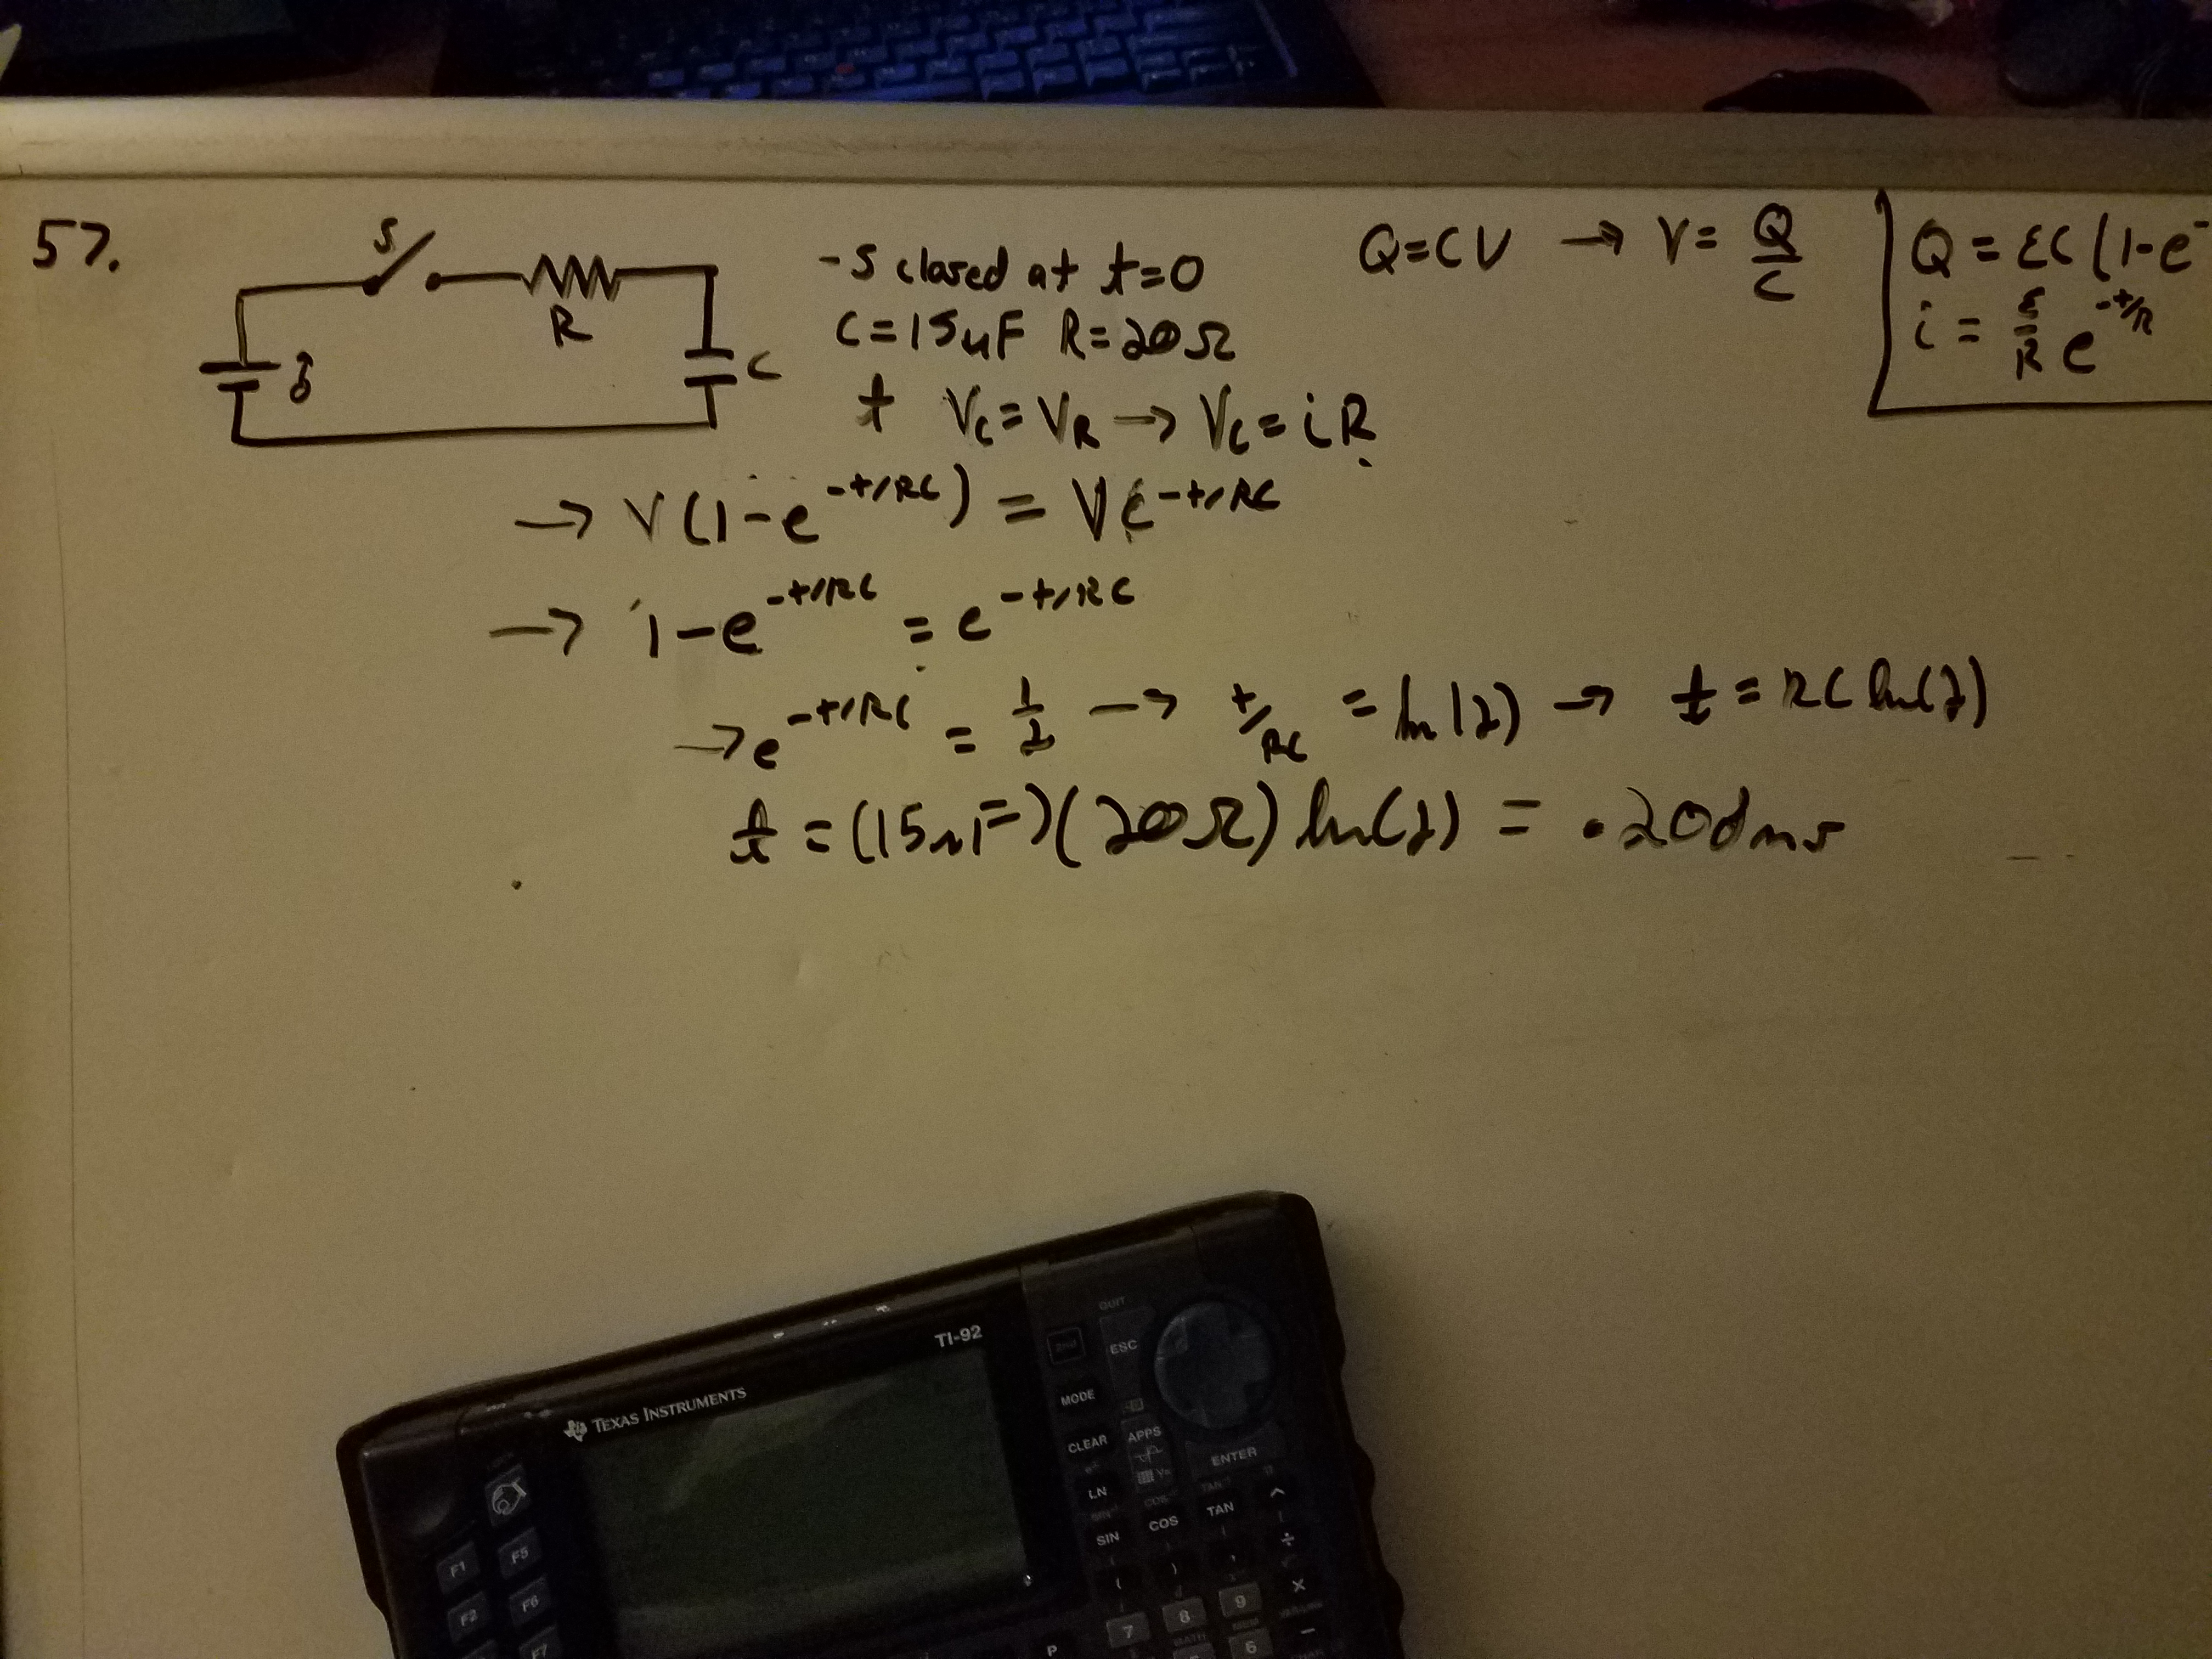 57.
S
R
ℰ
C
-S closed at t=0
C=15uF R=20Ω
t Vc=VR → Vc=iR
Q=CV → V=Q/C
Q=εC(1-e-
i=ε/R e^-t/R
→ V(1-e^-t/RC) = Ve^-t/RC
→ 1-e^-t/RC = e^-t/RC
→ e^-t/RC = 1/2 → t/RC = ln(2) → t=RC ln(2)
t=(15uF)(20Ω) ln(2) = .208ms
TI-92
TEXAS INSTRUMENTS
QUIT
2nd
ESC
MODE
CLEAR
APPS
ENTER
LN
Y=
SIN
COS
TAN
^
÷
(
)
,
×
F1
F5
F2
F6
F7
P
7
8
9
-
MATH
MEM
6